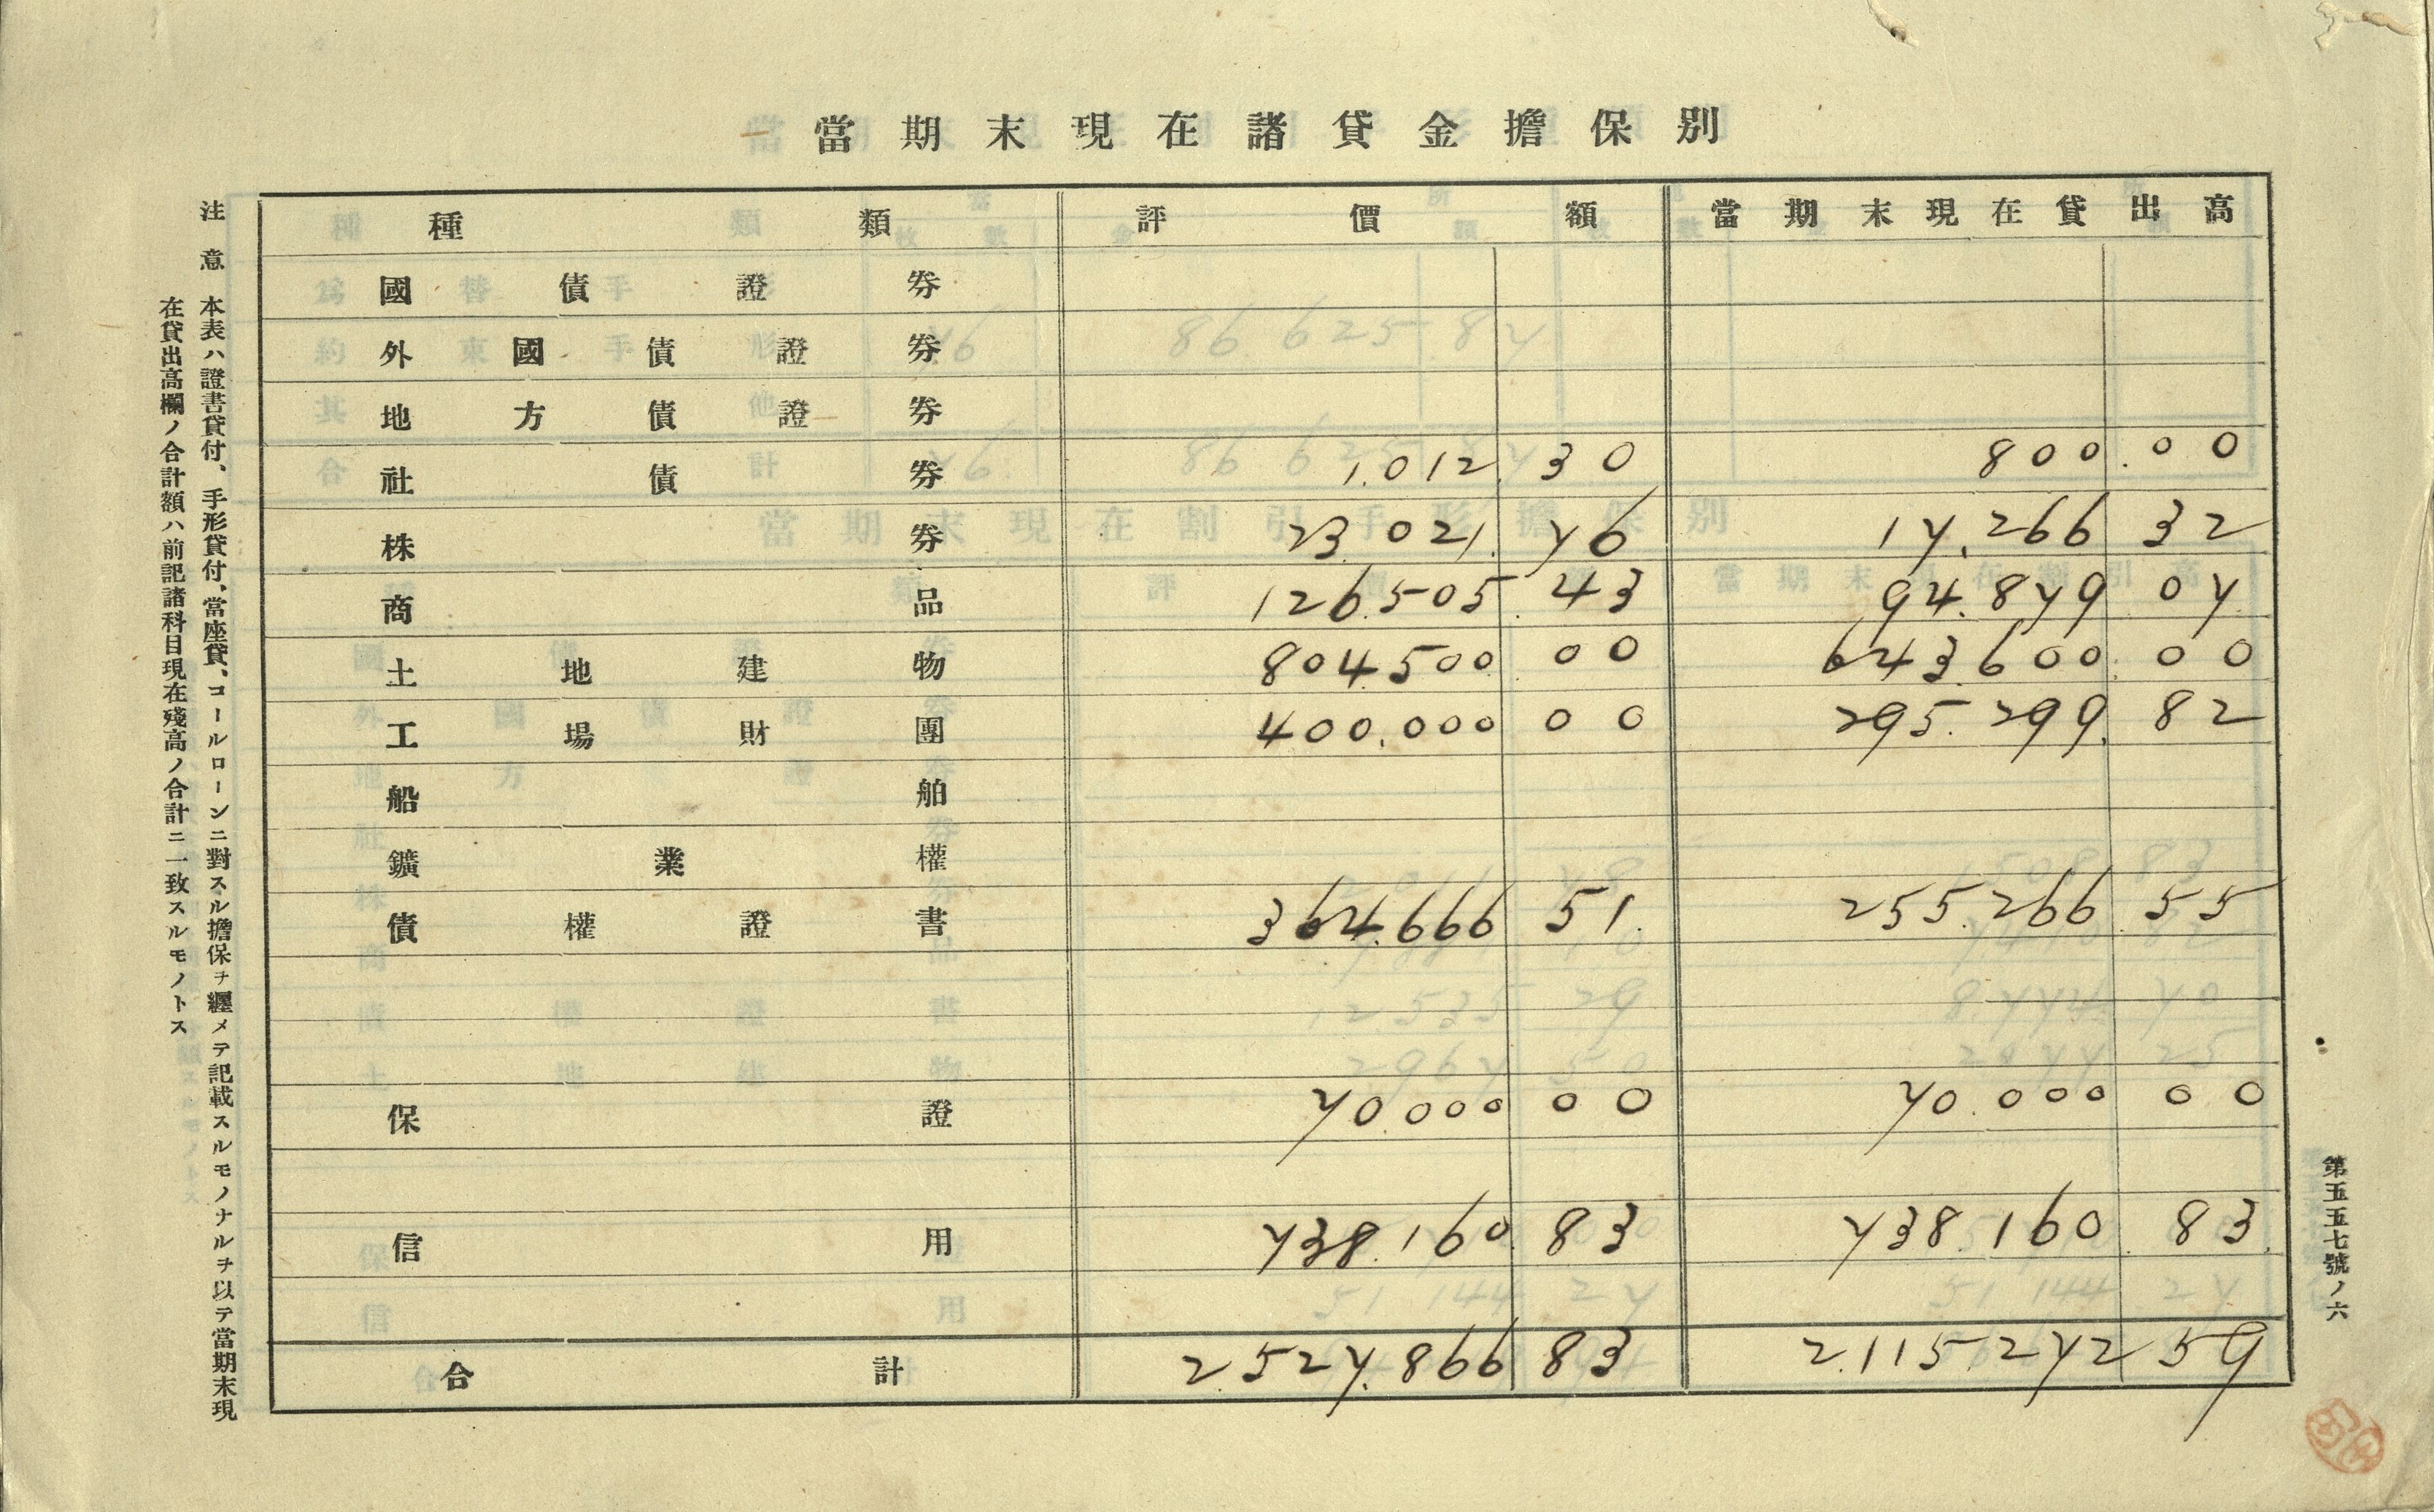 當期末現在諸貸金擔保別
種類 評價額 當期末現在貸出高
國債證券
外國債證券
地方債證券
社債券 1,012.30 800.00
株券 23.021.76 17.266 32
商品 126.505.43 94.879 07
土地建物 804.500 00 643.600.00
工場財團 400.000 00 295.299.82
船舶
鑛業權
債權證書 364.666 51. 255.266 55
保證 70.000 00 70.000 00
信用 738.160.83 738.160.83.
合計 2.527.866 83 2.115.272 59
注意 本表ハ證書貸付、手形貸付、當座貸、コールローンニ對スル擔保ヲ纒メテ記載スルモノナルヲ以テ當期末現
在貸出高欄ノ合計額ハ前記諸科目現在殘高ノ合計ニ一致スルモノトス
第五五七號ノ六